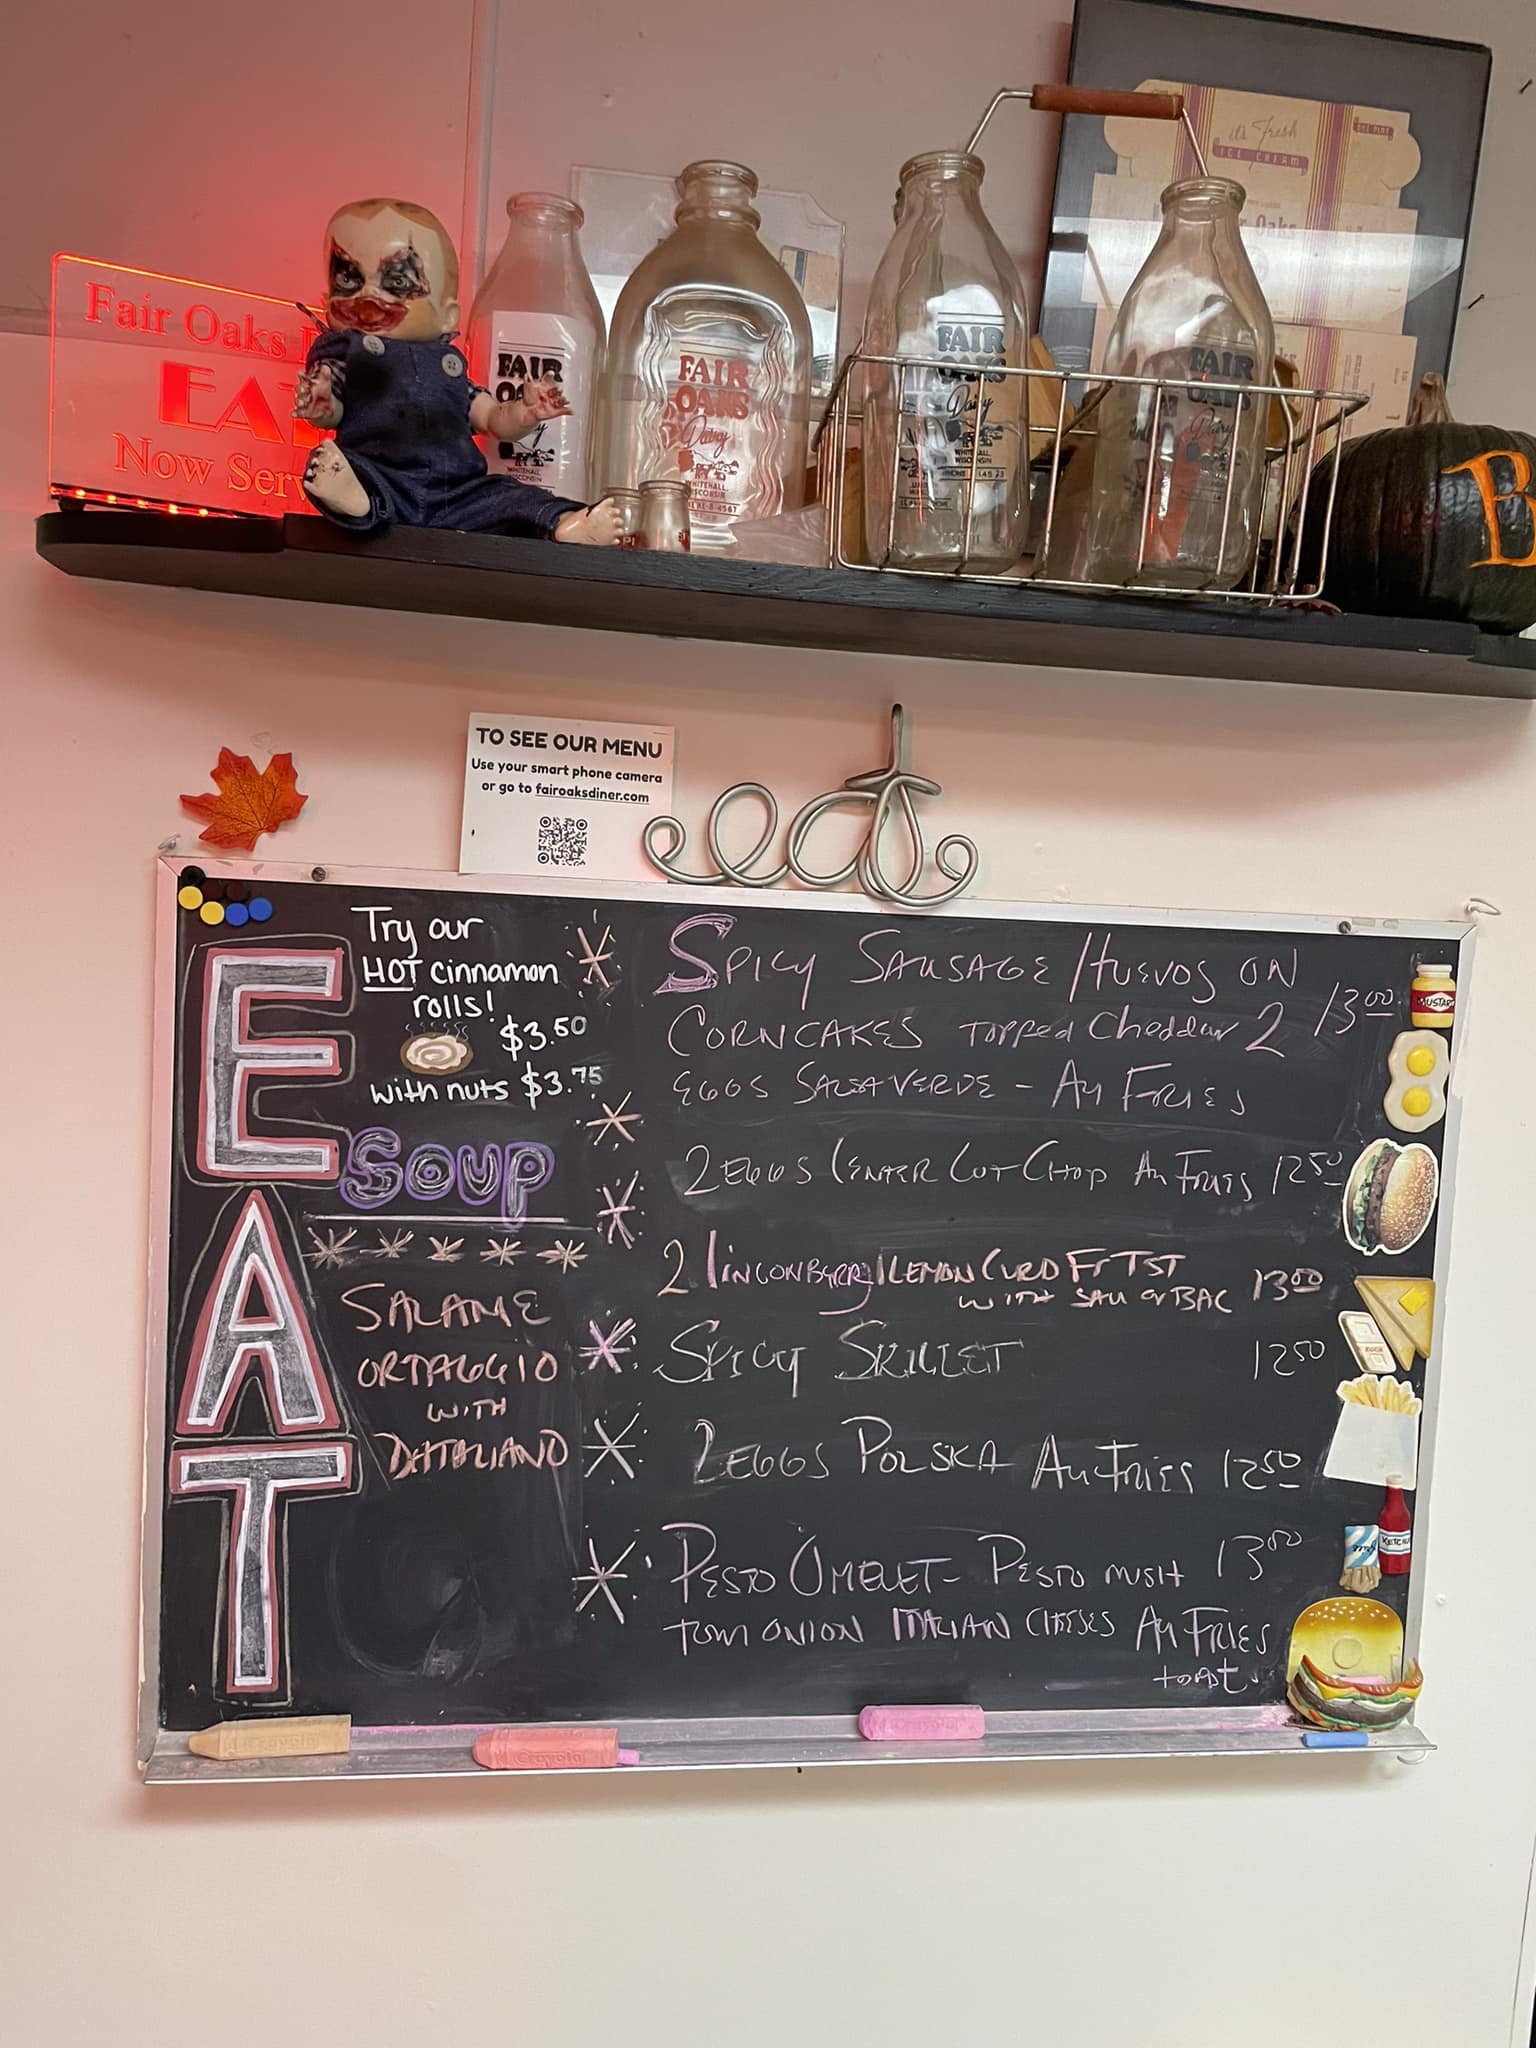 it's Fresh
ICE CREAM
Oaks
Fair Oaks
EAT
Now Serv
FAIR
OAKS
Dairy
WHITEHALL,
WISCONSIN
FAIR
OAKS
Dairy
WHITEHALL,
WISCONSIN
FAIR
OAKS
Dairy
WHITEHALL,
WISCONSIN
FAIR
OAKS
Dairy
B
TO SEE OUR MENU
Use your smart phone camera
or go to fairoaksdiner.com
eat
EAT
Try our
HOT cinnamon
rolls!
$3.50
with nuts $3.75
Soup
SALAME
ORTAGGIO
WITH
SPICY SAUSAGE / HUEVOS ON
CORNCAKES TOPPED Cheddar 2 13.00
EGGS SALSA VERDE - AU FRIES
2 EGGS CENTER CUT CHOP AU FRIES 12.50
2 LINGONBERRY/LEMON CURD FR TST
WITH SAU or BAC 13.00
SPICY SKILLET 12.50
2 EGGS POLSKA AU FRIES 12.50
PESTO OMELET - PESTO MUSH 13.00
TOM ONION ITALIAN CHEESES AU FRIES
TOAST
MUSTARD
KETCHUP
Crayola
Crayola